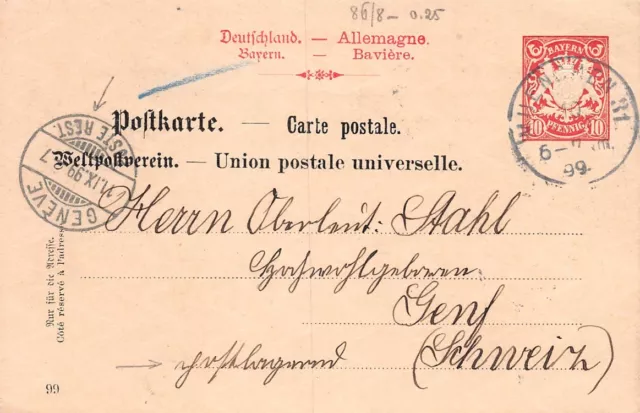 86/8 - 0.25
Deutschland. — Allemagne.
Bayern. — Bavière.
BAYERN
10 PFENNIG 10
MUENCHEN 31.
6-7
99.
Postkarte. — Carte postale.
Weltpostverein. — Union postale universelle.
GENÈVE
11.IX.99.-7
POSTE REST.
Herrn Oberleut: Stahl
Hochwohlgeboren
Genf
postlagernd (Schweiz)
Nur für die Adresse.
Côté réservé à l'adresse.
99